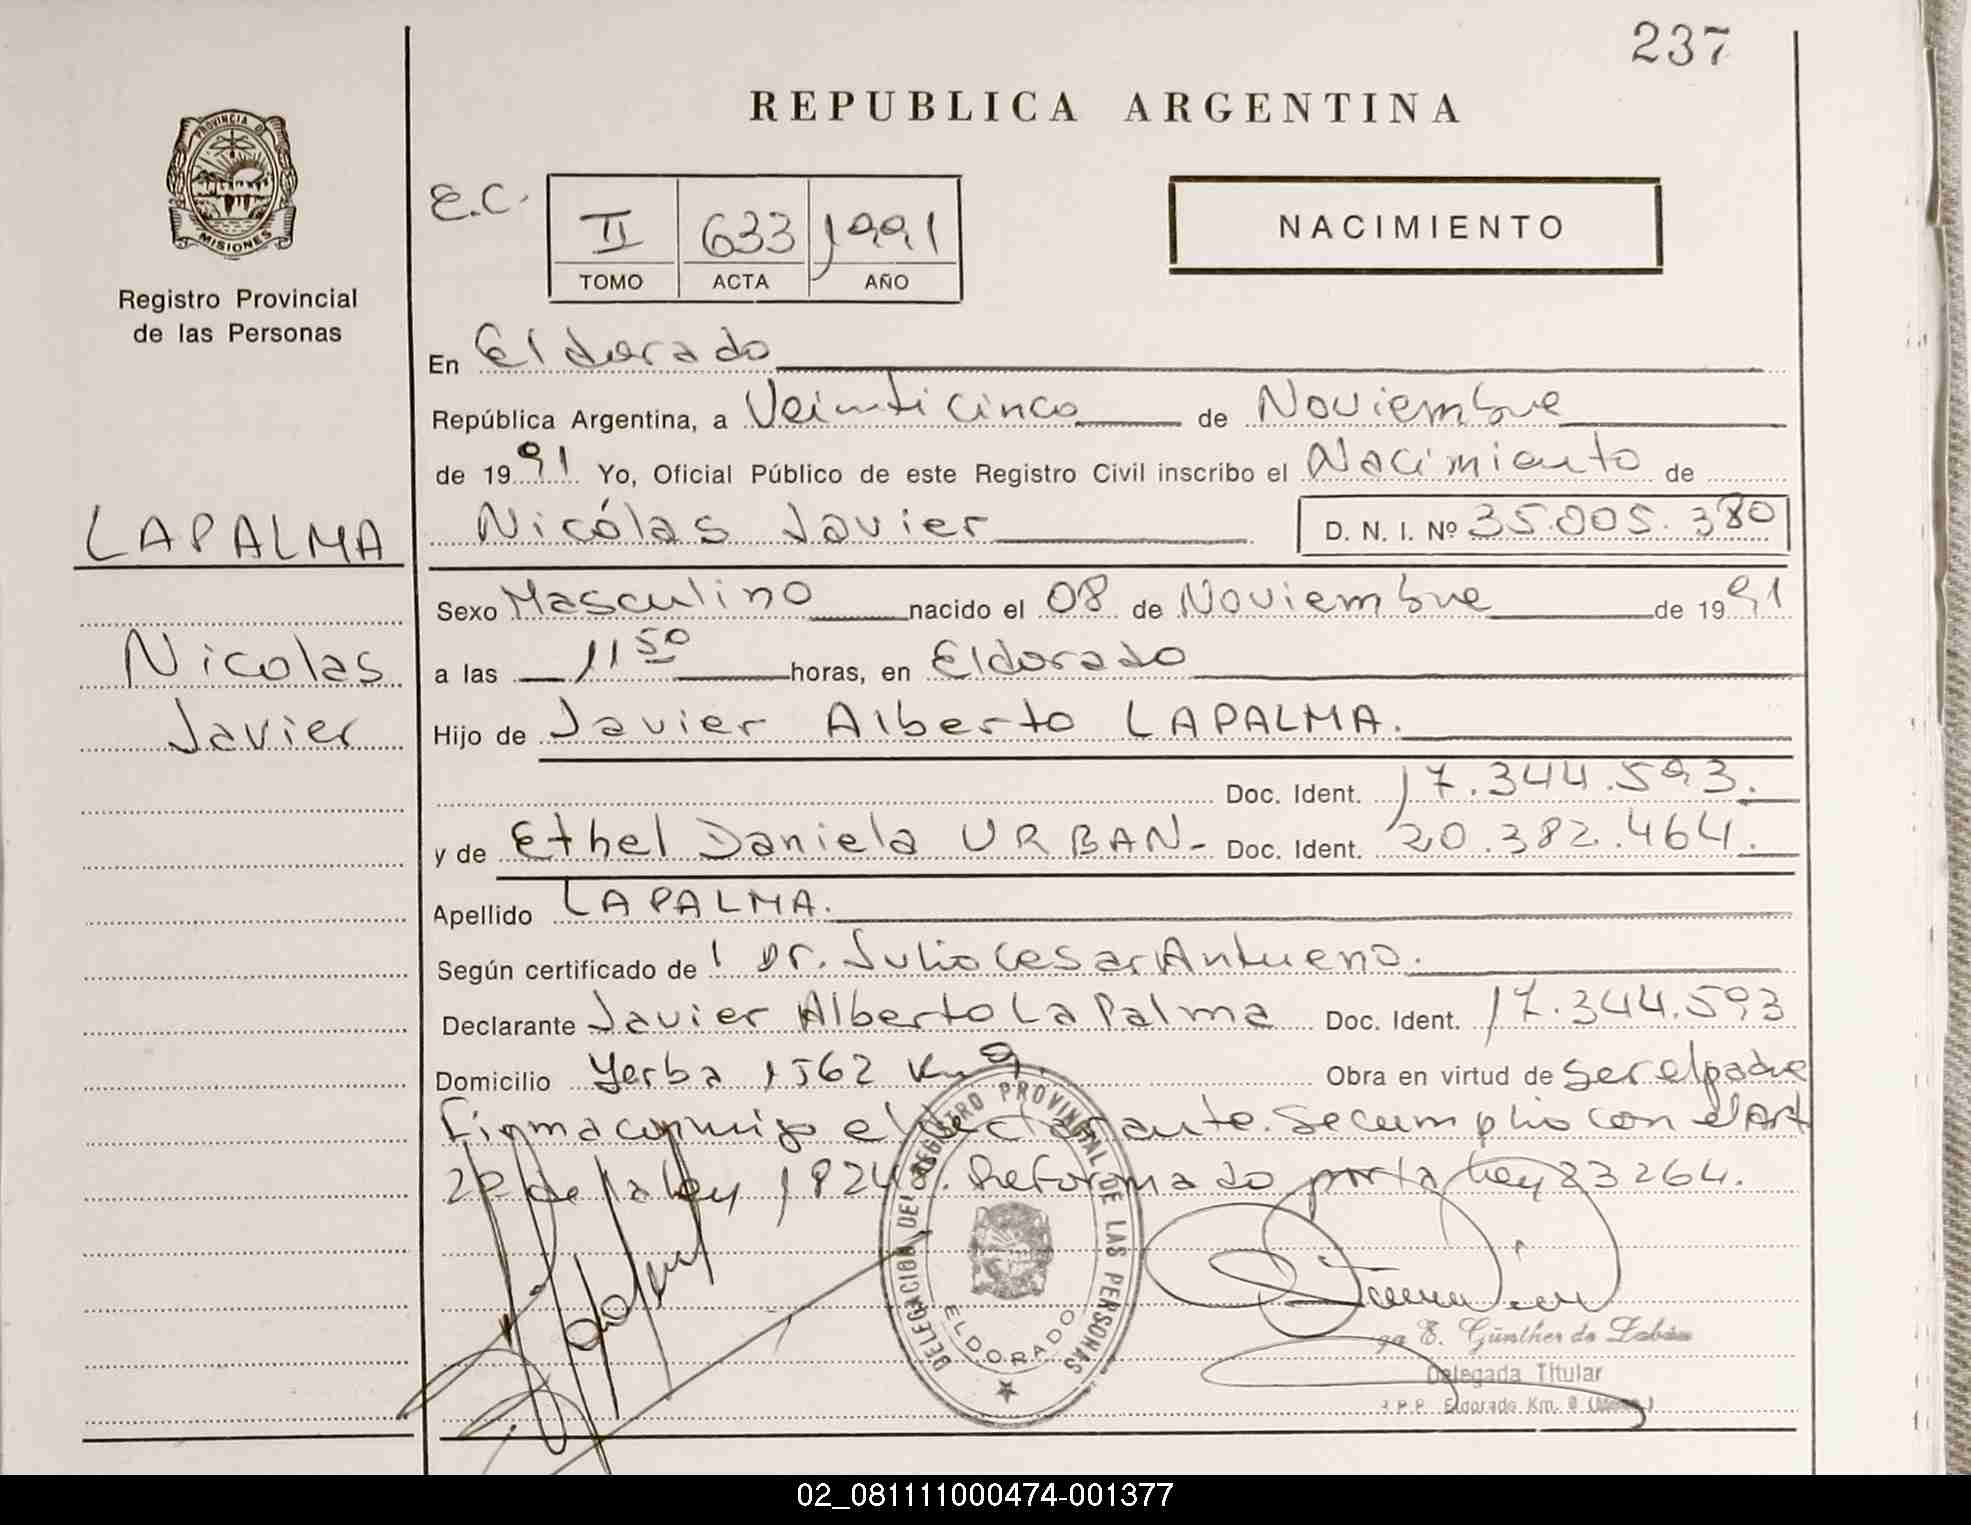 237
REPUBLICA ARGENTINA
PROVINCIA DE
MISIONES
Registro Provincial
de las Personas
E.C.
II 633 1991
TOMO ACTA AÑO
NACIMIENTO
En Eldorado
República Argentina, a Veinticinco de Noviembre
de 1991 Yo, Oficial Público de este Registro Civil inscribo el Nacimiento de
Nicólas Javier D. N. I. Nº 35.005.380
LAPALMA
Nicolas
Javier
Sexo Masculino nacido el 08 de Noviembre de 1991
a las 11 50 horas, en Eldorado
Hijo de Javier Alberto LAPALMA.
Doc. Ident. 17.344.593.
y de Ethel Daniela URBAN- Doc. Ident. 20.382.464.
Apellido LAPALMA.
Según certificado de Dr. Julio Cesar Antueno.
Declarante Javier Alberto LaPalma Doc. Ident. 17.344.593
Domicilio Yerba 1562 Km 9. Obra en virtud de ser el padre
Firma conmigo el declarante. Se cumplio con el Art
22 de la Ley 18248. Reformado por la Ley 23264.
DELEGACION DEL REGISTRO PROVINCIAL DE LAS PERSONAS
ELDORADO
E. Günther de
Delegada Titular
Eldorado Km. 9
02_081111000474-001377